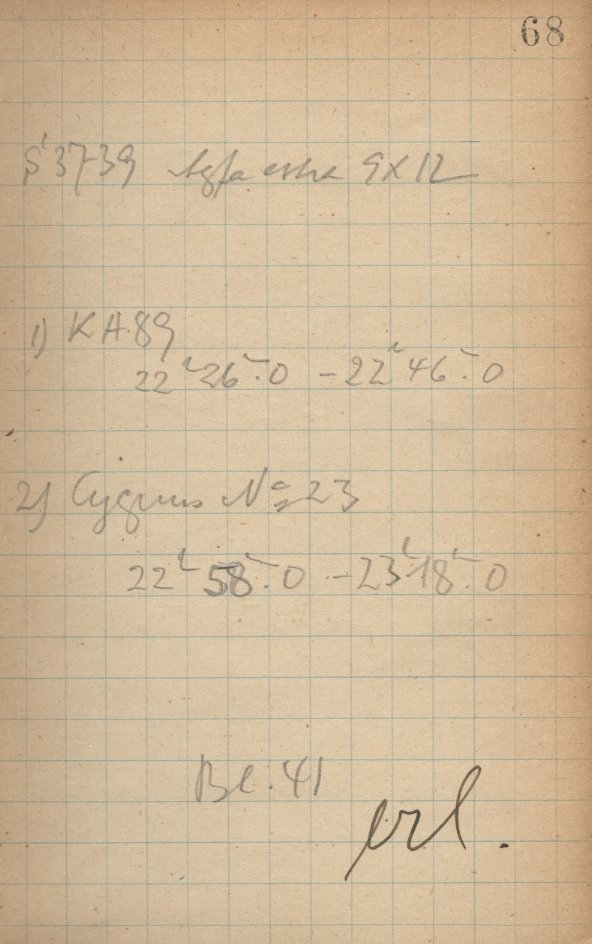 68
S' 3739 Agfa astra 9x12
1) KA 89
22ʰ26ᵐ.0 - 22ʰ46ᵐ.0
2) Cygnus № 23
22ʰ58ᵐ.0 - 23ʰ18ᵐ.0
Bl. 41
erl.